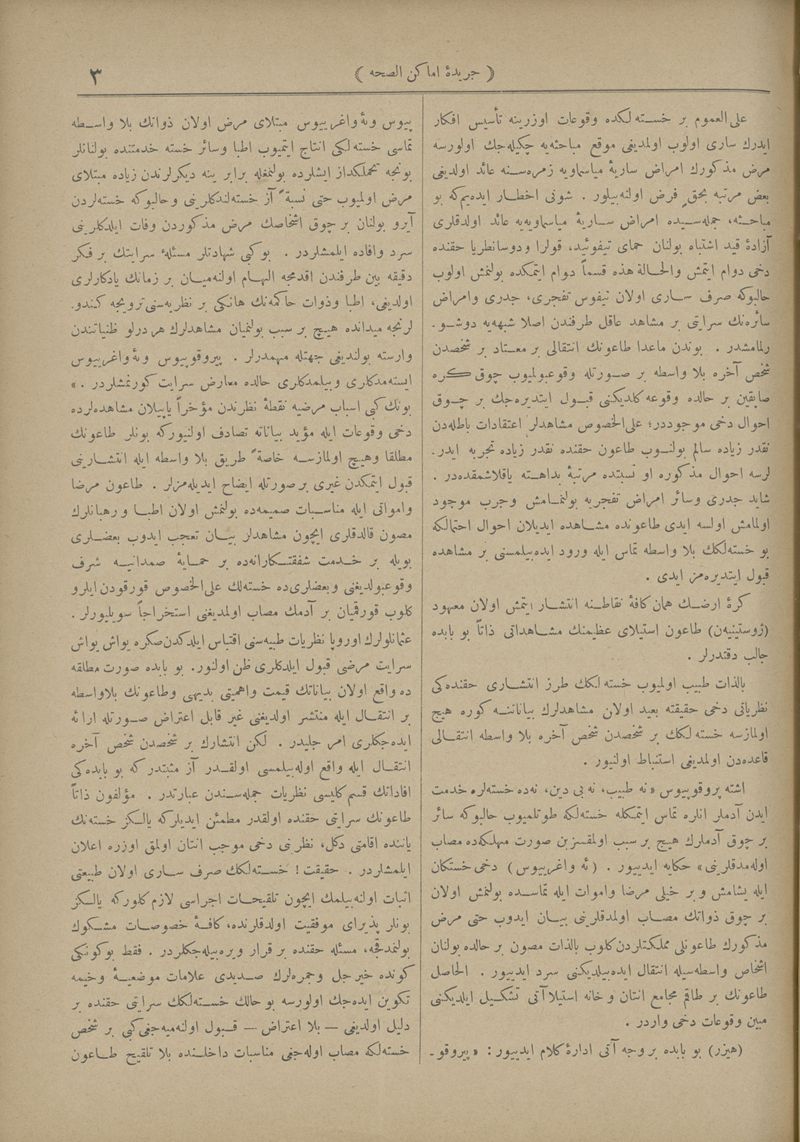 ﴿ جریدهٔ اماکن الصحه ﴾
٣
علی العموم بر خسته لکده وقوعات اوزرینه تأسیس افکار
ایدرك ساری اولوب اولمدیغی موقع مباحثه یه چکیله جك اولورسه
مرض مذکورك امراض ساریهٔ میاسماویه زمره سنه عائد اولدیغی
بعض مرتبه بحق فرض اولنه بیلور . شونی اخطار ایده یم که بو
مباحثه، جمله سیده امراض ساریهٔ میاسماویه یه عائد اولدقلری
آزادهٔ قید اشتباه بولنان حمای تیفوئید، قولرا ودوسانطریا حقنده
دخی دوام ایتمش والحالة هذه قسماً دوام ایتمکده بولنمش اولوب
حالبوکه صرف ساری اولان تیفوس تفجری، جدری وامراض
سائره نك سرایتی بر مشاهد عاقل طرفندن اصلا شبهه یه دوشو-
رلمامشدر . بوندن ماعدا طاعونك انتقالی بر معتاد بر شخصدن
شخص آخره بلا واسطه بر صورتله وقوعبولمیوب چوق کره
صایقین بر حالده وقوعه کلدیکنی قبول ایتدیره جك بر چوق
احوال دخی موجوددر؛ علی الخصوص مشاهدلر اعتقادات باطله دن
نقدر زیاده سالم بولنوب طاعون حقنده نقدر زیاده تجربه ایدر-
لرسه احوال مذکوره او نسبتده مرتبهٔ بداهته یاقلاشمقده در .
شاید جدری وسائر امراض تفجریه بولنمامش وجرب موجود
اولمامش اولسه ایدی طاعونده مشاهده ایدیلان احوال احتمالکه
بو خسته لكك بلا واسطه تماس ایله ورود ایده بیلمسنی بر مشاهده
قبول ایتدیره مز ایدی .
کرهٔ ارضك همان کافهٔ نقاطنه انتشار ایتمش اولان معهود
(ژوستینیه ن) طاعون استیلای عظیمنك مشاهداتی ذاتاً بو بابده
جالب دقتدرلر .
بالذات طبیب اولمیوب خسته لكك طرز انتشاری حقنده کی
نظریاتی دخی حقیقته بعید اولان مشاهدلرك بیاناتنه کوره هیچ
اولمازسه خسته لكك بر شخصدن شخص آخره بلا واسطه انتقالی
قاعده دن اولمدیغی استنباط اولنیور .
اشته پروقوپیوس «نه طبیب، نه بی دین، نه ده خسته لره خدمت
ایدن آدملر انلره تماس ایتمکله خسته لکه طوتلمیوب حالبوکه سائر
بر چوق آدملرك هیچ بر سبب اولمقسزین صورت مهلکه ده مصاب
اوله مدقلرینی» حکایه ایدییور . (ئه واغریوس) دخی خستکان
ایله یشامش و بر خیلی مرضا واموات ایله تماسده بولنمش اولان
بر چوق ذواتك مصاب اولمدقلرینی بیان ایدوب حتی مرض
مذکورك طاعونلی مملکتلردن کلوب بالذات مصون بر حالده بولنان
اشخاص واسطه سیله انتقال ایده بیلدیکنی سرد ایدییور . الحاصل
طاعونك بر طاقم مجامع انتان و خانه استیلا آتی تشکیل ایلدیکنی
مبین وقوعات دخی واردر .
(هیزر) بو بابده بر وجه آتی ادارهٔ کلام ایدییور : « پیروقو-
پیوس وئه واغریوس مبتلای مرض اولان ذواتك بلا واسطه
تماسی خسته لکی انتاج ایتمیوب اطبا وسائر خسته خدمتنده بولنانلر
بونجه تهلکه دار ایشلرده بولنمغله برابر ینه دیکرلرندن زیاده مبتلای
مرض اولمیوب حتی نسبةً آز خسته لندکلرینی وحالبوکه خسته لردن
آیرو بولنان بر چوق اشخاصك مرض مذکوردن وفات ایلدکلرینی
سرد وافاده ایلمشلردر . بو کبی شهادتلر مسئلهٔ سرایتك بر فکر
دقیقه بین طرفندن اقدمجه الهام اولنه میان بر زمانك یادکارلری
اولدیغی، اطبا وذوات حاکمه نك هانکی بر نظریه سنی ترویجه کندو-
لرنجه میدانده هیچ بر سبب بولنمیان مشاهدلرك هر درلو ظنیاتندن
وارسته بولندیغی جهتله مهمدرلر . پیروقوپیوس وئه واغریوس
ایسته مدکلری وبیلمدکلری حالده معارض سرایت کورنمشلردر . »
بونك کبی اسباب مرضیه نقطهٔ نظرندن مؤخراً یاپیلان مشاهده لرده
دخی وقوعات ایله مؤید بیاناته تصادف اولنیورکه بونلر طاعونك
مطلقا وهیچ اولمازسه خاصةً طریق بلا واسطه ایله انتشارینی
قبول ایتمکدن غیری بر صورتله ایضاح ایدیله مزلر . طاعون مرضا
وامواتی ایله مناسبات صمیمه ده بولنمش اولان اطبا و رهبانلرك
مصون قالدقلری ایچون مشاهدلر بیان تعجب ایدوب بعضلری
بویله بر خدمت شفقتکارانه ده بر حمایهٔ صمدانیه شرف
وقوعبولدیغی وبعضلری ده خسته لك علی الخصوص قورقودن ایلرو
کلوب قورقمیان بر آدمك مصاب اولمدیغنی استخراجاً سویلیورلر .
عثمانلولرك اوروپا نظریات طبیه سنی اقتباس ایلدکدن صکره یواش یواش
سرایت مرضی قبول ایلدکلری ظن اولنور. بو بابده صورت مطلقه
ده واقع اولان بیاناتك قیمت واهمیتی بدیهی وطاعونك بلاواسطه
بر انتقال ایله منتشر اولدیغنی غیر قابل اعتراض صورتله ارائه
ایده جکلری امر جلیدر . لکن انتشارك بر شخصدن شخص آخره
انتقال ایله واقع اوله بیلمسی اولقدر آز مثبتدر که بو بابده کی
افاداتك قسم کلیسی نظریات جمله سندن عبارتدر . مؤلفون ذاتاً
طاعونك سرایتی حقنده اولقدر مطمئن ایدیلرکه یالکز خسته نك
یاننده اقامتی دکل، نظرینی دخی موجب انتان اولمق اوزره اعلان
ایلمشلردر . حقیقت ! خسته لكك صرف ساری اولان طبیعتی
اثبات اولنه بیلمك ایچون تلقیحات اجراسی لازم کلورکه یالکز
بونلر پذیرای موفقیت اولدقلرنده، کافهٔ خصوصات مشکوك
بولنمدقجه، مسئله حقنده بر قرار ویره بیله جکلردر . فقط بوکونکی
کونده خیرجل وجمره لرك صدیدی علامات موضعیهٔ وخیمه
تکوین ایده جك اولورسه بو حالك خسته لكك سرایتی حقنده بر
دلیل اولدیغی — بلا اعتراض — قبول اولنه میه جغی کبی بر شخص
خسته لکه مصاب اوله جغی مناسبات داخلنده بلا تلقیح طاعون